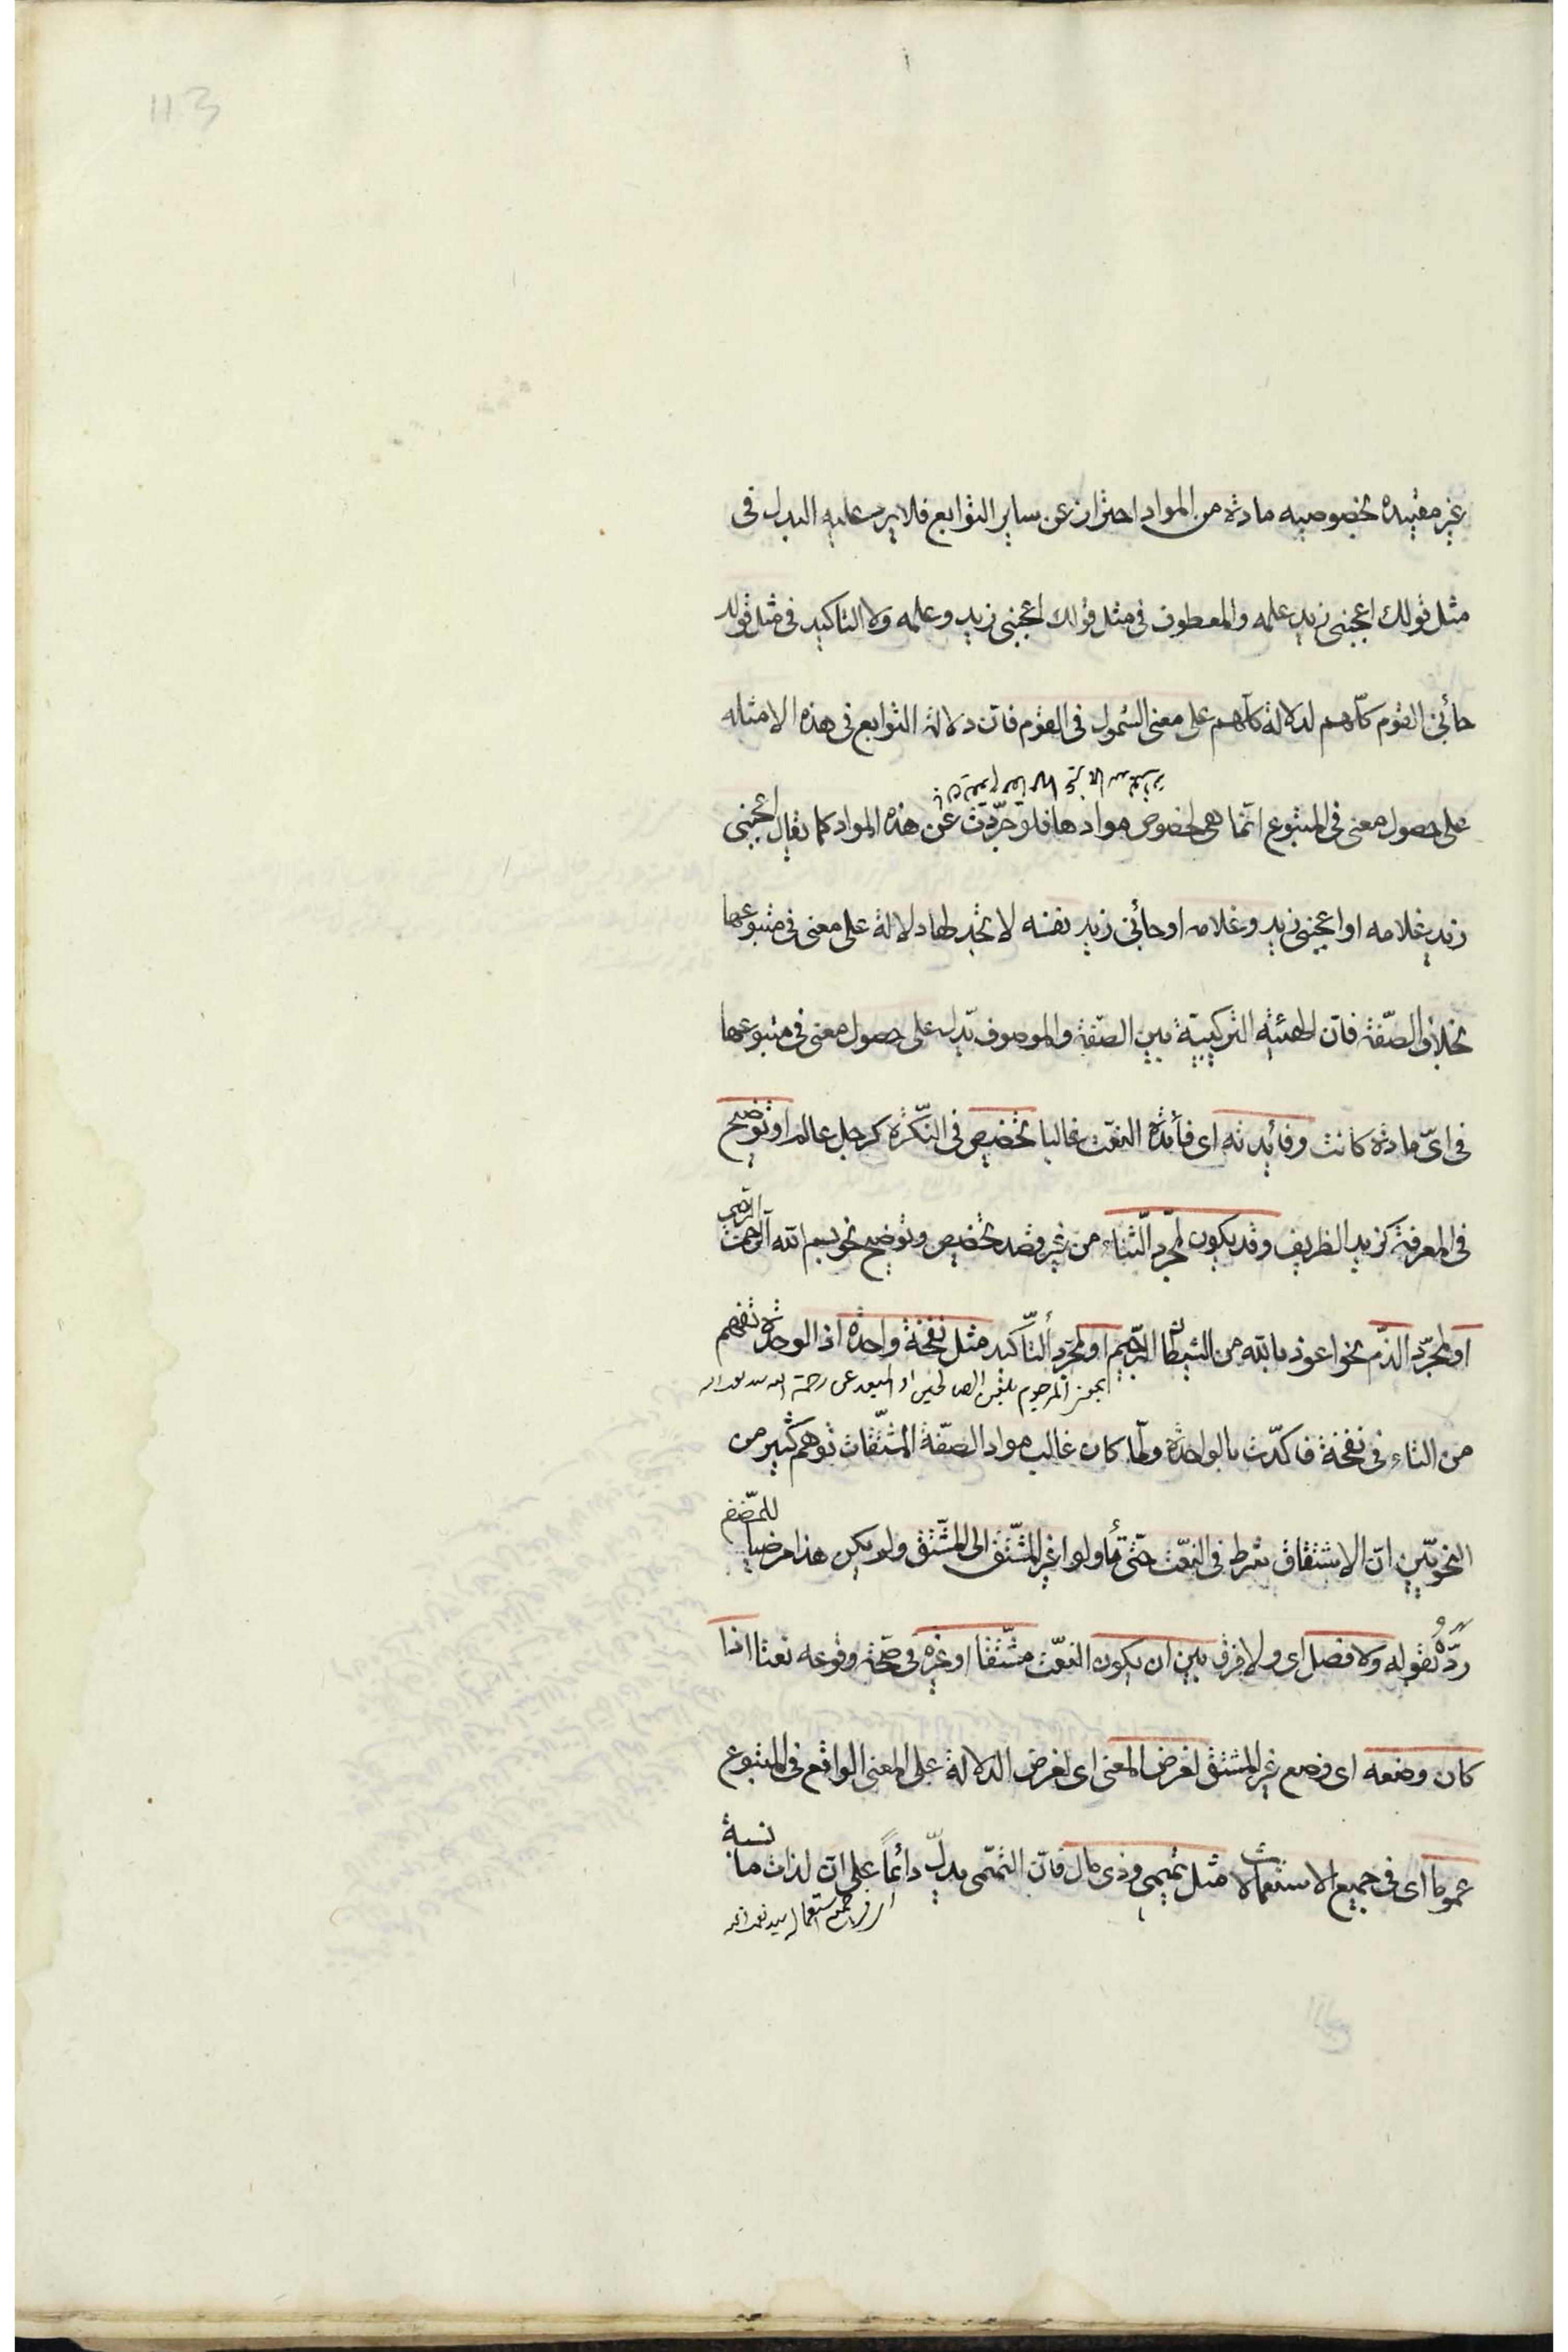 113
غير مقيده بخصوصيه مادة من المواد احتراز عن ساير التوابع فلا يرد عليه البدل فى
مثل قولك اعجبنى زيد علمه والمعطوف فى مثل قولك اعجبنى زيد وعلمه ولا التاكيد فى مثل قولك
جائنى القوم كلّهم لدلالة كلّهم على معنى الشمول فى القوم فانّ دلالة التوابع فى هذه الامثله
على حصول معنى فى المتبوع انّما هى لخصوص موادها فلو جرّدت عن هذه المواد كما يقال اعجبنى
زيد غلامه او اعجبنى زيد وغلامه او جائنى زيد نفسه لا تجد لها دلالة على معنى فى متبوعها
بخلاف الصّفة فانّ الهيئة التركيبيّة بين الصّفة والموصوف تدل على حصول معنى فى متبوعها
فى اىّ مادة كانت وفائدته اى فائدة النعت غالبا تخصيص فى النّكرة كرجل عالم او توضيح
فى المعرفة كزيد الظريف وقد يكون لمجرّد الثّناء من غير قصد تخصيص وتوضيح نحو بسم الله الرحمن الرحيم
او لمجرّد الذّم نحو اعوذ بالله من الشيطان الرّجيم او لمجرّد التّأكيد مثل نفخة واحدة اذ الوحدة تفهم
بمعنى المرجوم بلعن الصالحين او المبعد عن رحمة الله
من التاء فى نفخة فاكدّت بالواحدة ولمّا كان غالب مواد الصّفة المشتّقات توهم كثير من
النحويّين انّ الاشتقاق شرط فى النعت حتّى تأولوا غير المشتّق الى المشتّق ولم يكن هذا مرضيا للمصّنف
ردّه بقوله ولا فصل اى ولا فرق بين ان يكون النعت مشتّقا او غيره فى صحّة وقوعه نعتا اذا
كان وضعه اى وضع غير المشتق لغرض المعنى اى لغرض الدلالة على المعنى الواقع فى المتبوع
عموما اى فى جميع الاستعمالات مثل تميمى وذى مال فانّ التميمى يدلّ دائماً على انّ لذات ما نسبة